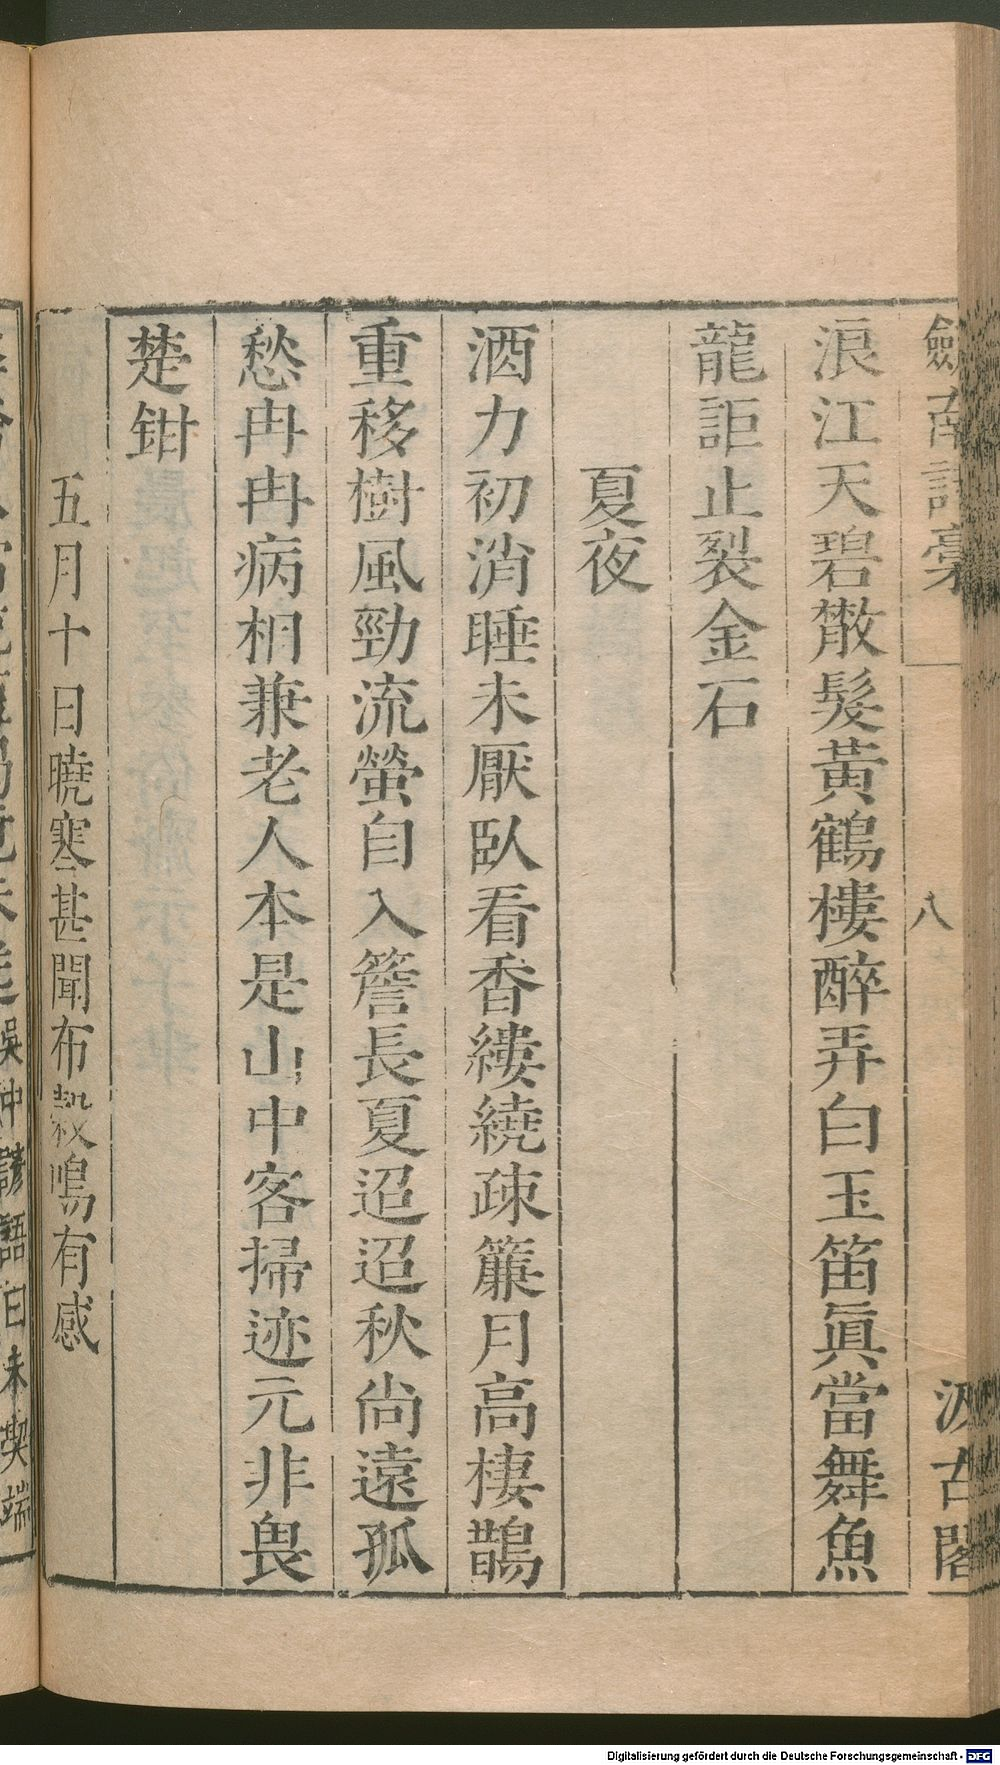 劍南詩稾 八 汲古閣
浪江天碧散髮黃鶴樓醉弄白玉笛眞當舞魚
龍詎止裂金石
夏夜
酒力初消睡未厭臥看香縷繞疎簾月高棲鵲
重移樹風勁流螢自入簷長夏迢迢秋尚遠孤
愁冉冉病相兼老人本是山中客掃迹元非畏
楚鉗
五月十日曉寒甚聞布穀鳴有感
吳中諺語曰未契端
Digitalisierung gefördert durch die Deutsche Forschungsgemeinschaft - DFG